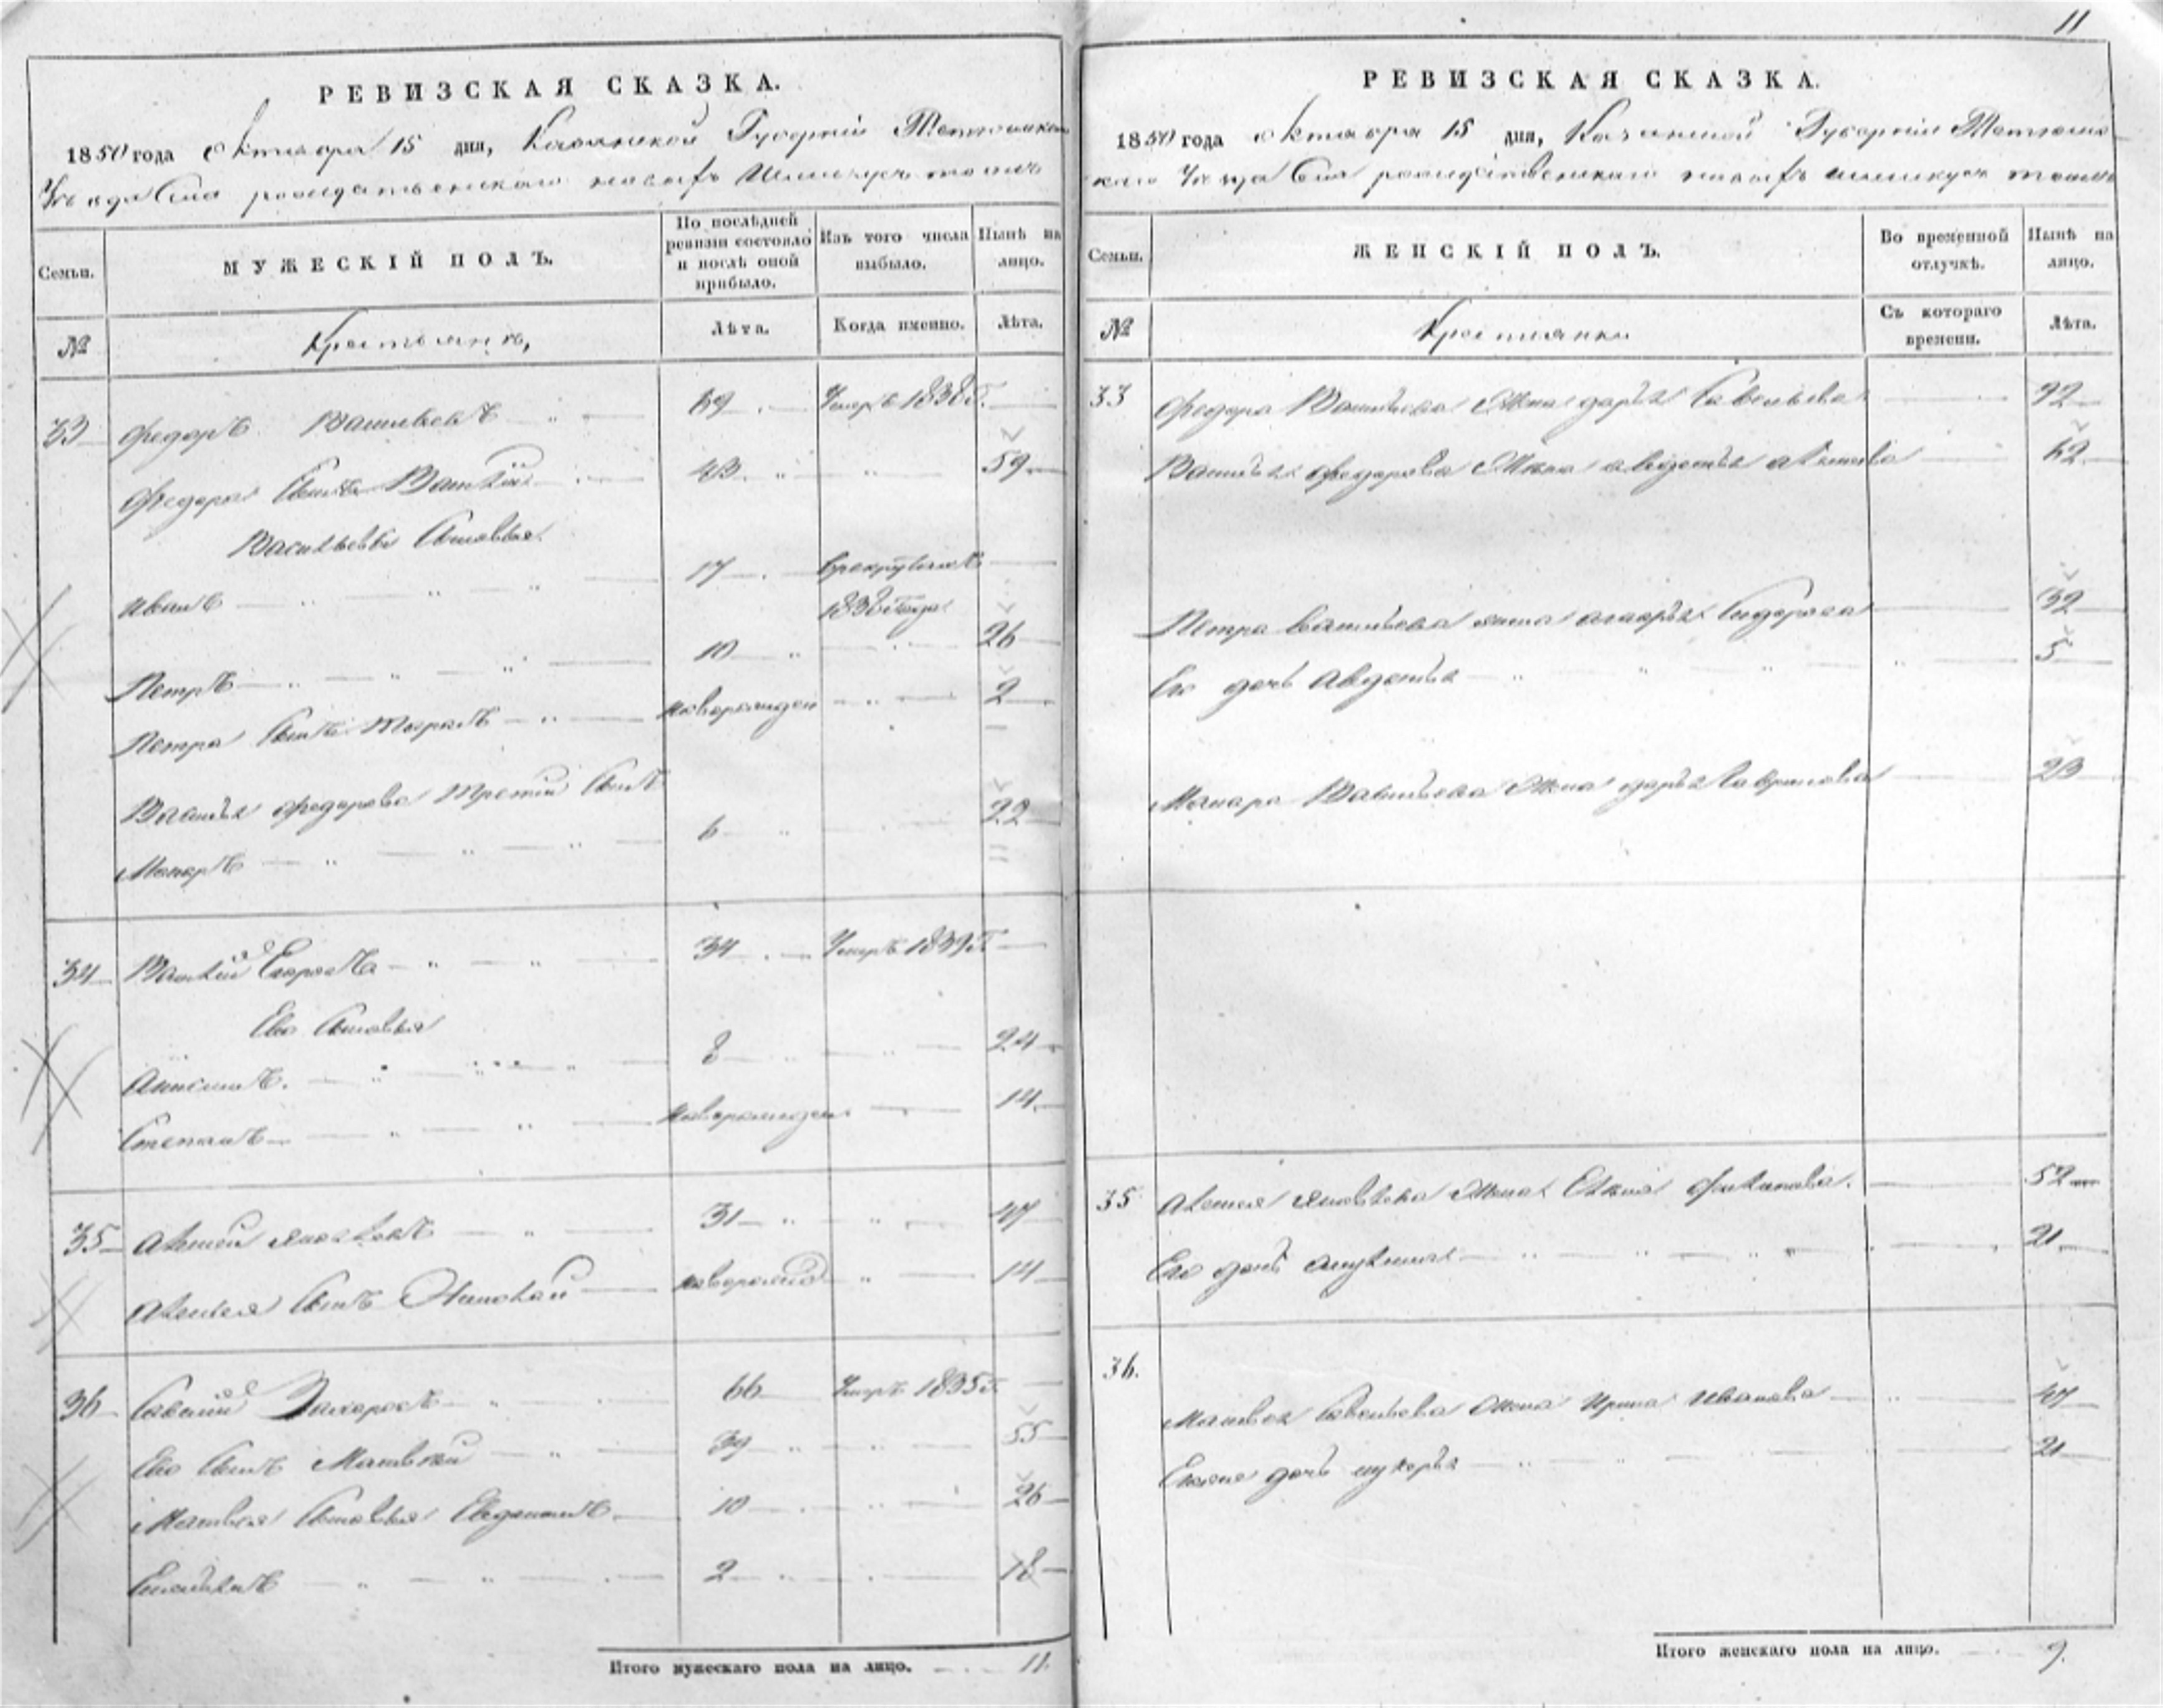 11
РЕВИЗСКАЯ СКАЗКА.
1850 года Октября 15 дня, Казанской Губернiи Тетюшскаго
Уезда Села рождественскаго тожъ
Семьи.
МУЖЕСКІЙ ПОЛЪ.
По послѣдней ревизіи состояло и послѣ оной прибыло.
Изъ того числа выбыло.
Нынѣ на лицо.
№
Крестьянъ,
Лѣта.
Когда именно.
Лѣта.
33 Федоръ Васильевъ 69 Умеръ 1838 г.
Федора Сынъ Василiй 43 59
Васильевы Сыновья
Иванъ 17 в рекрутахъ
1836 года
Петръ 10 26
Петра Сынъ новорожден 2
Василья Федорова третiй Сынъ
Макаръ 6 22
34 Василiй Егоровъ 34 Умеръ 1839 г.
Ево Сыновья
Анисимъ. 8 24
Степанъ новорожден 14
35 Алексей Яковлевъ 31 47
Алексея Сынъ Николай новорожд 14
36 Савелiй Захаровъ 66 Умеръ 1835 г.
Ево Сынъ Матвей 39 55
Матвея Сыновья Евдокимъ 10 26
2 18
Итого мужескаго пола на лицо. 11.
РЕВИЗСКАЯ СКАЗКА.
1850 года октября 15 дня, Казанской Губернiи Тетюшс-
каго Уезда Села рождественскаго тожъ
Семьи.
ЖЕНСКІЙ ПОЛЪ.
Во временной отлучкѣ.
Нынѣ на лицо.
№
Крестьянки
Съ котораго времени.
Лѣта.
33 Федора Васильева Жена дарья Савельева 92
Василья Федорова Жена авдотья 62
Петра Васильева жена Сидорова 32
Его дочь Авдотья 5
Макара Васильева Жена дарья Гаврилова 23
35 Алексея Яковлева Жена Елена Филипова. 52
Его дочь акулина 21
36. Матвея Савельева Жена Ирина Иванова 47
дочь 21
Итого женскаго пола на лицо. 9.